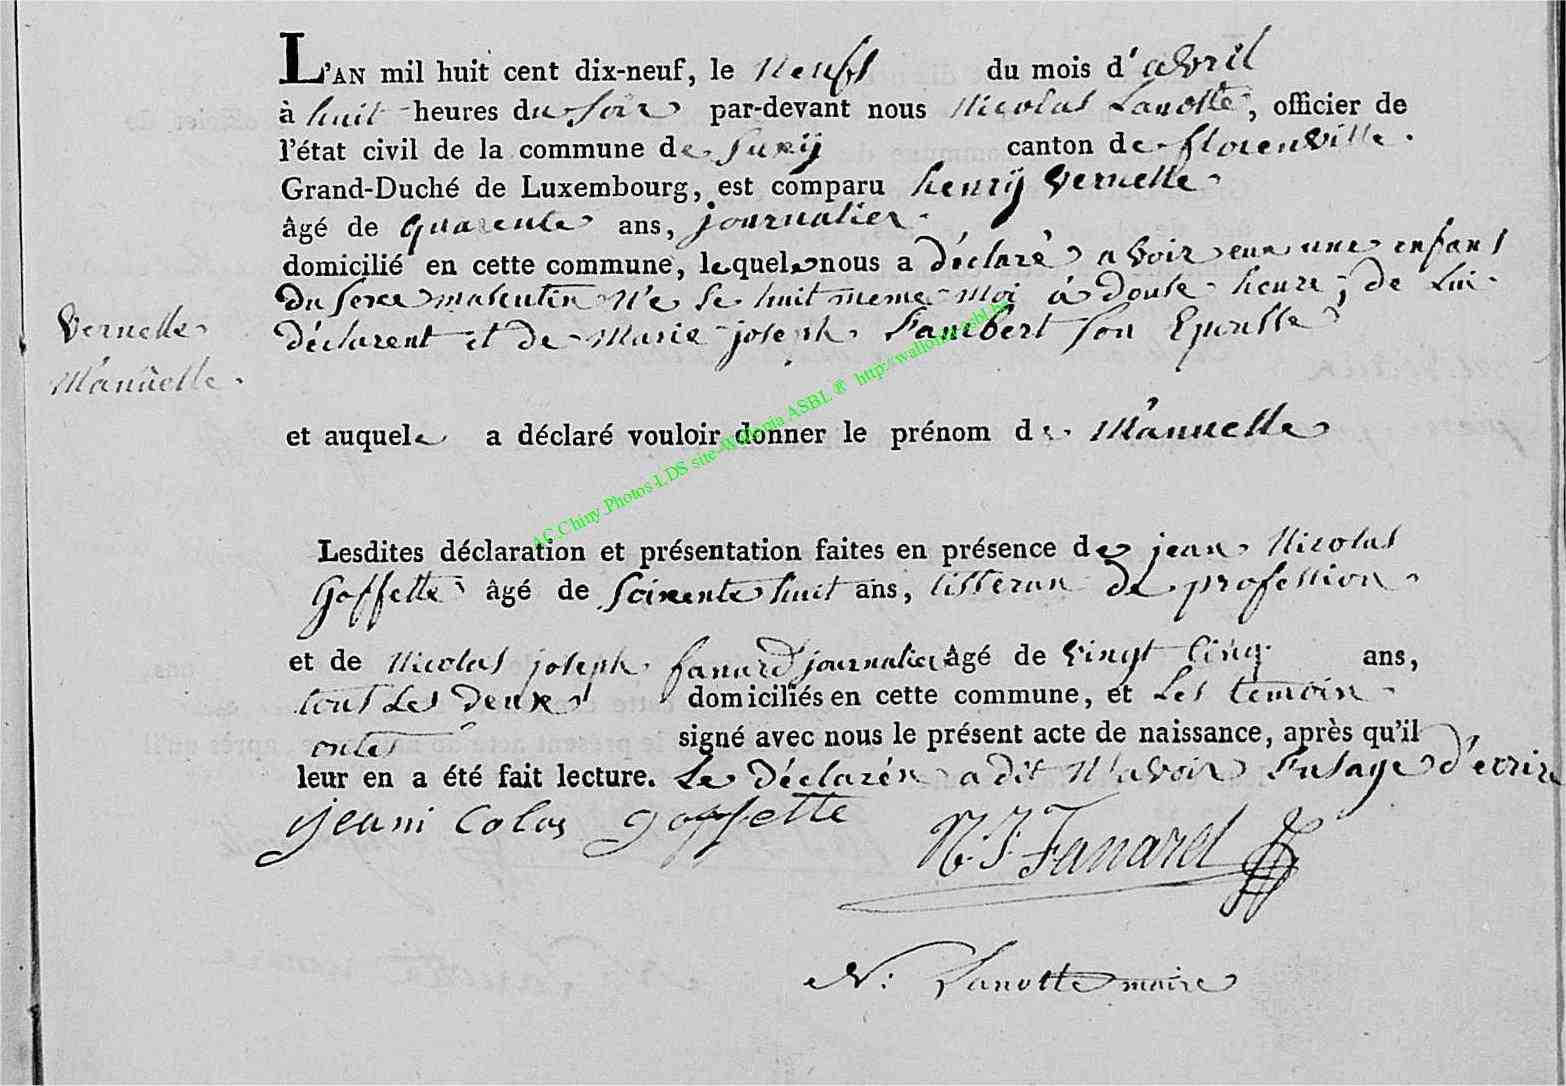 L'AN mil huit cent dix-neuf, le neufs du mois d'avril
à huit heures du soir par-devant nous Nicolas Lanotte, officier de
l'état civil de la commune de Suxÿ canton de florenville
Grand-Duché de Luxembourg, est comparu henrÿ Vernelle
âgé de quarente ans, journalier
domicilié en cette commune, lequel nous a déclaré avoir eux une enfans
Du sexe masculin Né le huit meme moi à douse heure, de Lui
déclarent et de Marie joseph Lambert son Epousse
Vernelle
Manuelle
et auquel a déclaré vouloir donner le prénom de Manuelle
Lesdites déclaration et présentation faites en présence de jean Nicolas
Goffette âgé de Soixente huit ans, tisseran de profession
et de Nicolas joseph fanard journalier âgé de vingt Cinq ans,
tous Les deux domiciliés en cette commune, et Les temoin
ontes signé avec nous le présent acte de naissance, après qu'il
leur en a été fait lecture. Le Déclarén a dit N'avoir l'usage d'ecrire
jeani Colas goffette
N. J. Fanard
N: Lanotte maire
AC_Chiny_Photos-LDS site-Wallonia ASBL ® http://wallonia-asbl.be